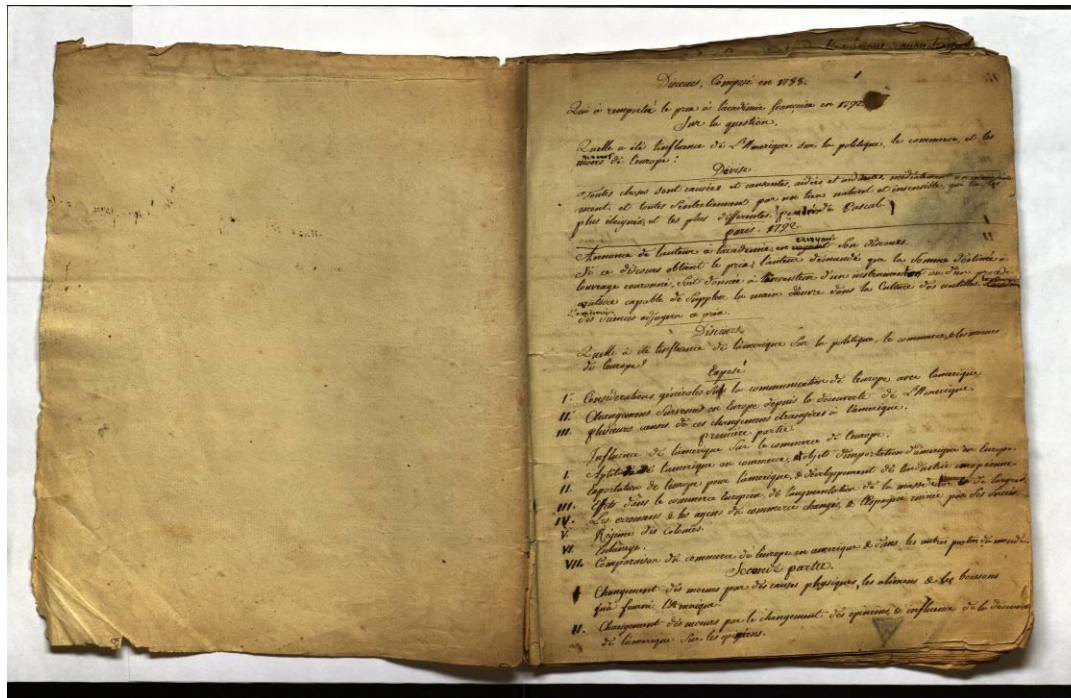 Discours, Composé en 1788.
Qui à remporté le prix à lacadémie françoise en 1792
Sur la question.
Quelle a été linfluence de L'Amerique sur la politique, le commerce, et les
mœurs de leurope?
Dévise
Toutes choses sont causées et causantes, aidées et aidantes, médiatement
ment, et toutes s'entretiennent par un lien naturel et insensible, qui lie les
plus éloignées, et les plus différentes. pensées de Pascal
paris. 1792
Annonce de lauteur à lacadémie, en envoyant Son discours.
Si ce discours obtient le prix, lauteur démande que la Somme déstinée à
louvrage couronné, Soit donnée à linvention d'un instrument ou d'un procédé
capable de Suppléer la main dœuvre dans la Culture des antilles.
des sciences adjugera ce prix.
Discours
Quelle à été linfluence de lamerique Sur la politique, le commerce, & les mœurs
de leurope?
Exposé
I. Considerations générales Sur la communication de leurope avec lamerique
II. Changemens Survenus en Europe depuis la découverte de L'Amerique.
III. plusieurs causes de ces changemens étrangères à lamerique.
première partie.
Influence de lamerique Sur le commerce de leurope.
I. Aptitude de lamerique au commerce, & objet d'importation d'amerique en Europe.
II. Exportation de leurope pour lamerique, & développement de lindustrie européenne
III. Effets dans le commerce Européen, de laugmentation de la masse de l'argent
IV. Les & les agens du commerce changés, & lespagne ruinée par Ses Succès
V. Régime des Colonies.
VI. Esclavage.
VII. Comparaison du commerce de leurope en amerique & dans les autres parties du monde
Seconde partie.
I Changement des mœurs par des causes physiques, les alimens & les boissons
que fourni l'Amerique.
II. Changement des mœurs par le changement des opinions, & influence de la découverte
de lamerique Sur les opinions.